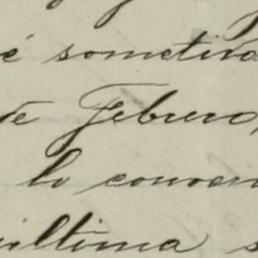 é sometida
de Febrero,
lo conven
última s